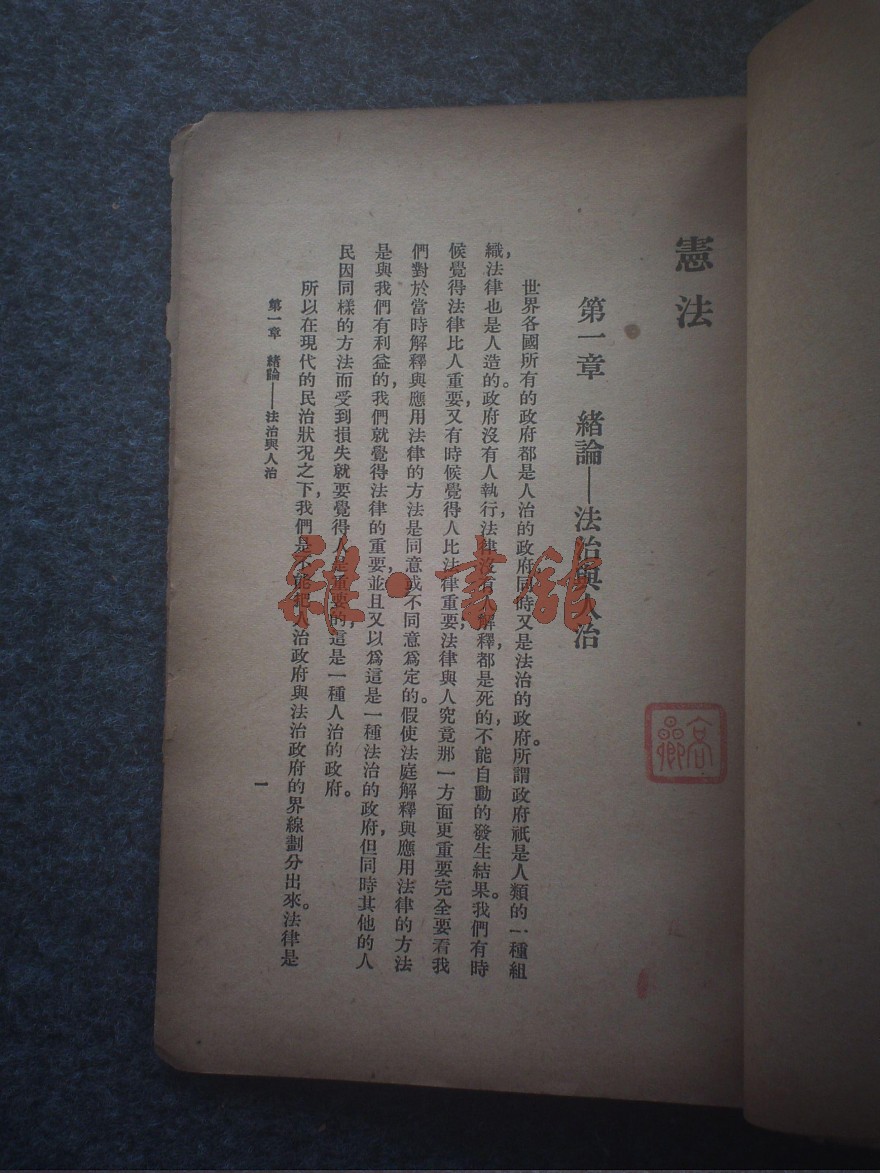 憲法
第一章　緒論——法治與人治
世界各國所有的政府都是人治的政府同時又是法治的政府。所謂政府祇是人類的一種組
織，法律也是人造的。政府沒有人執行，法律沒有人解釋，都是死的，不能自動的發生結果。我們有時
候覺得法律比人重要，又有時候覺得人比法律重要；法律與人究竟那一方面更重要完全要看我
們對於當時解釋與應用法律的方法是同意或不同意爲定的。假使法庭解釋與應用法律的方法
是與我們有利益的，我們就覺得法律的重要，並且又以爲這是一種法治的政府，但同時其他的人
民因同樣的方法而受到損失就要覺得人是重要的，這是一種人治的政府。
所以在現代的民治狀況之下，我們是不能把人治政府與法治政府的界線劃分出來。法律是
第一章　緒論——法治與人治
一
雜·書館